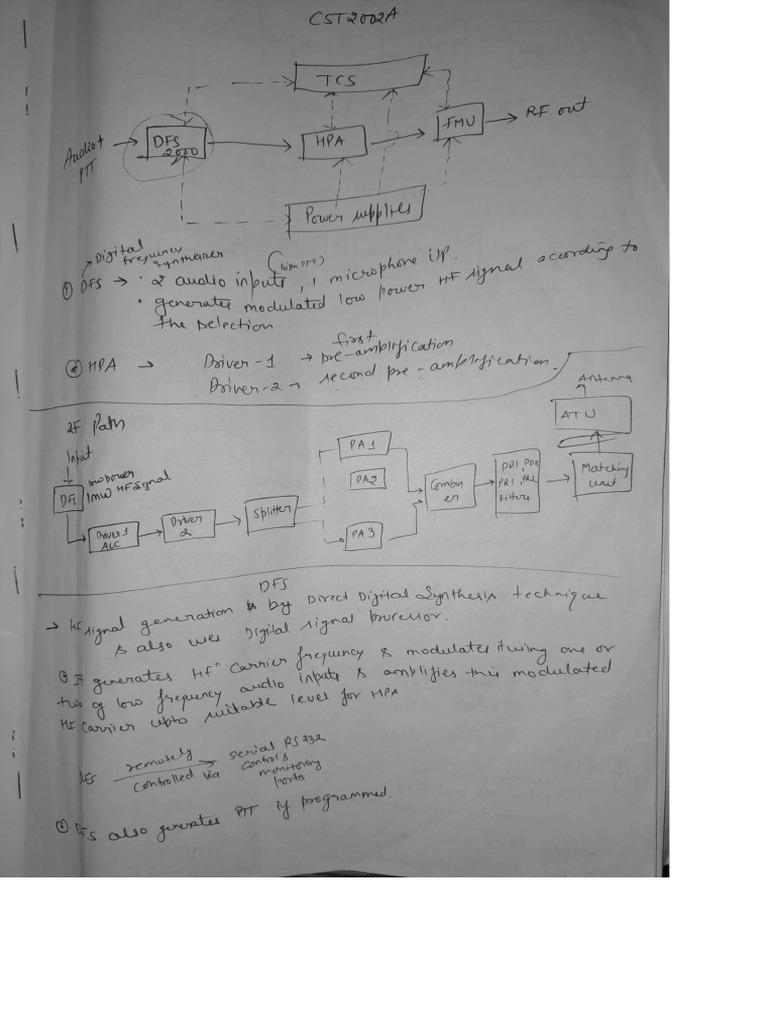 CST2002A
TCS
Audio +
PTT
DFS
2000
HPA
FMU
RF out
Power supplies
Digital
frequency
synthesizer
(with PTT)
① DFS → · 2 audio inputs, 1 microphone i/p.
· generates modulated low power HF signal according to
the selection
② HPA → Driver-1 → first
pre-amplification
Driver-2 → second pre-amplification.
RF Path
Input
DFS
low power
1mW HF signal
Driver 1
ALC
Driver
2
Splitter
PA1
PA2
PA3
Combin
er
PD1, PD2
PR1, PR2
Filters
Matching
unit
ATU
Antenna
DFS
→ HF signal generation is by Direct Digital Synthesis technique
& also uses Digital signal processor.
① It generates HF carrier frequency & modulates it using one or
two of low frequency audio inputs & amplifies this modulated
HF carrier upto suitable level for HPA
DFS remotely controlled via → serial RS232
controls
monitoring
ports
② DFS also generates PTT if programmed.